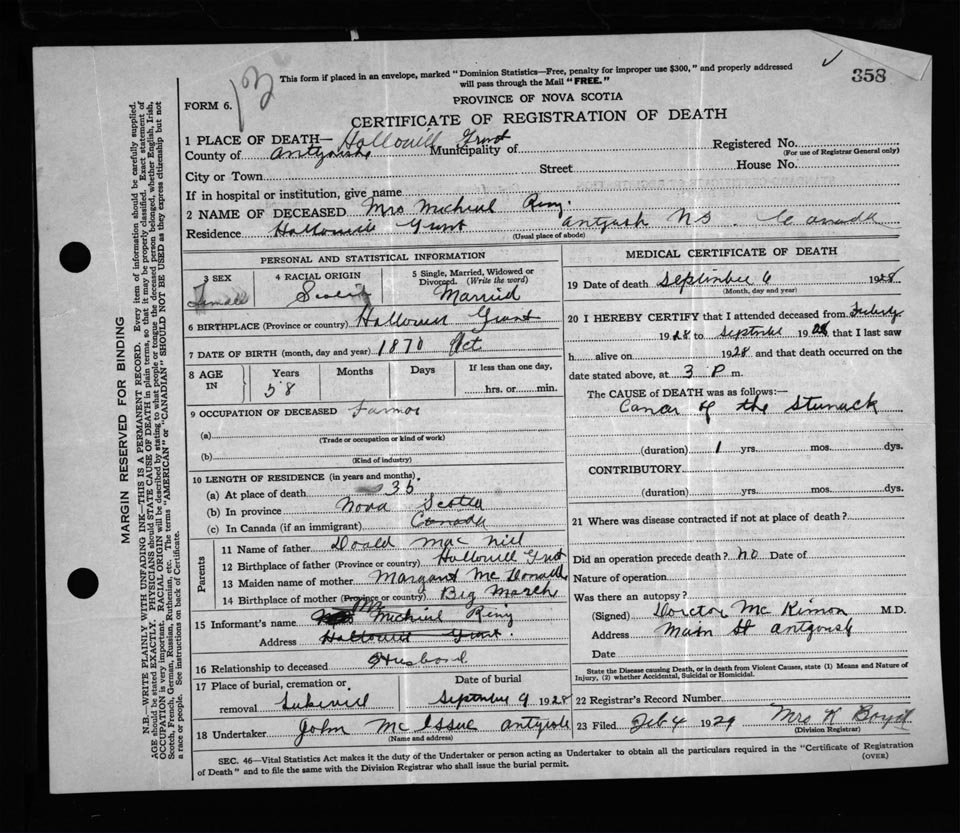 This form if placed in an envelope, marked "Dominion Statistics—Free, penalty for improper use $300," and properly addressed
will pass through the Mail "FREE."
358
FORM 6.
PROVINCE OF NOVA SCOTIA
CERTIFICATE OF REGISTRATION OF DEATH
1 PLACE OF DEATH— Hallowill Grant
Registered No.
County of Antgonish Municipality of
(For use of Registrar General only)
City or Town Street House No.
If in hospital or institution, give name
2 NAME OF DECEASED Mrs Micheal Ring.
Residence Hallowill Grant Antgonish N S. Canada
(Usual place of abode)
PERSONAL AND STATISTICAL INFORMATION
3 SEX 4 RACIAL ORIGIN 5 Single, Married, Widowed or Divorced. (Write the word)
Female Married
6 BIRTHPLACE (Province or country) Hallowill Grant
7 DATE OF BIRTH (month, day and year) 1870 Oct
8 AGE IN Years Months Days If less than one day,
58 hrs. or min.
9 OCCUPATION OF DECEASED
(a)
(Trade or occupation or kind of work)
(b)
(Kind of industry)
10 LENGTH OF RESIDENCE (in years and months).
(a) At place of death 35
(b) In province Nova Scotia
(c) In Canada (if an immigrant) Canada
Parents
11 Name of father Doald Mac Niel
12 Birthplace of father (Province or country) Hallowill Grant
13 Maiden name of mother Margaret Mc Donald
14 Birthplace of mother (Province or country) Big Marsh
15 Informant's name Mr Micheal Ring
Address Hallowill Grant.
16 Relationship to deceased Husband
17 Place of burial, cremation or removal Date of burial
September 9 1928
18 Undertaker John Mc Issac
(Name and address)
MEDICAL CERTIFICATE OF DEATH
19 Date of death September 6 1928
(Month, day and year)
20 I HEREBY CERTIFY that I attended deceased from
1928 to September 1928 that I last saw
h alive on 1928 and that death occurred on the
date stated above, at 3 P m.
The CAUSE of DEATH was as follows:—
Cancer of the Stumack
(duration) 1 yrs. mos. dys.
CONTRIBUTORY
(duration) yrs. mos. dys.
21 Where was disease contracted if not at place of death?
Did an operation precede death? no Date of
Nature of operation
Was there an autopsy?
(Signed) Doctor Mc Kinnon M.D.
Address Main St Antgonish
Date
State the Disease causing Death, or in death from Violent Causes, state (1) Means and Nature of
Injury, (2) whether Accidental, Suicidal or Homicidal.
22 Registrar's Record Number
23 Filed Feb 4 1929 Mrs K Boyd
(Division Registrar)
SEC. 46—Vital Statistics Act makes it the duty of the Undertaker or person acting as Undertaker to obtain all the particulars required in the "Certificate of Registration
of Death" and to file the same with the Division Registrar who shall issue the burial permit.
(OVER)
MARGIN RESERVED FOR BINDING
N.B.—WRITE PLAINLY WITH UNFADING INK—THIS IS A PERMANENT RECORD. Every item of information should be carefully supplied.
AGE should be stated EXACTLY. PHYSICIANS should STATE CAUSE OF DEATH in plain terms, so that it may be properly classified. Exact statement of
OCCUPATION is very important. RACIAL ORIGIN will be described by stating to what people or tongue the deceased person belonged, whether English, Irish,
Scotch, French, German, Russian, Ruthenian, etc. The terms "AMERICAN" or "CANADIAN" SHOULD NOT BE USED as they express citizenship but not
a race or people. See instructions on back of Certificate.